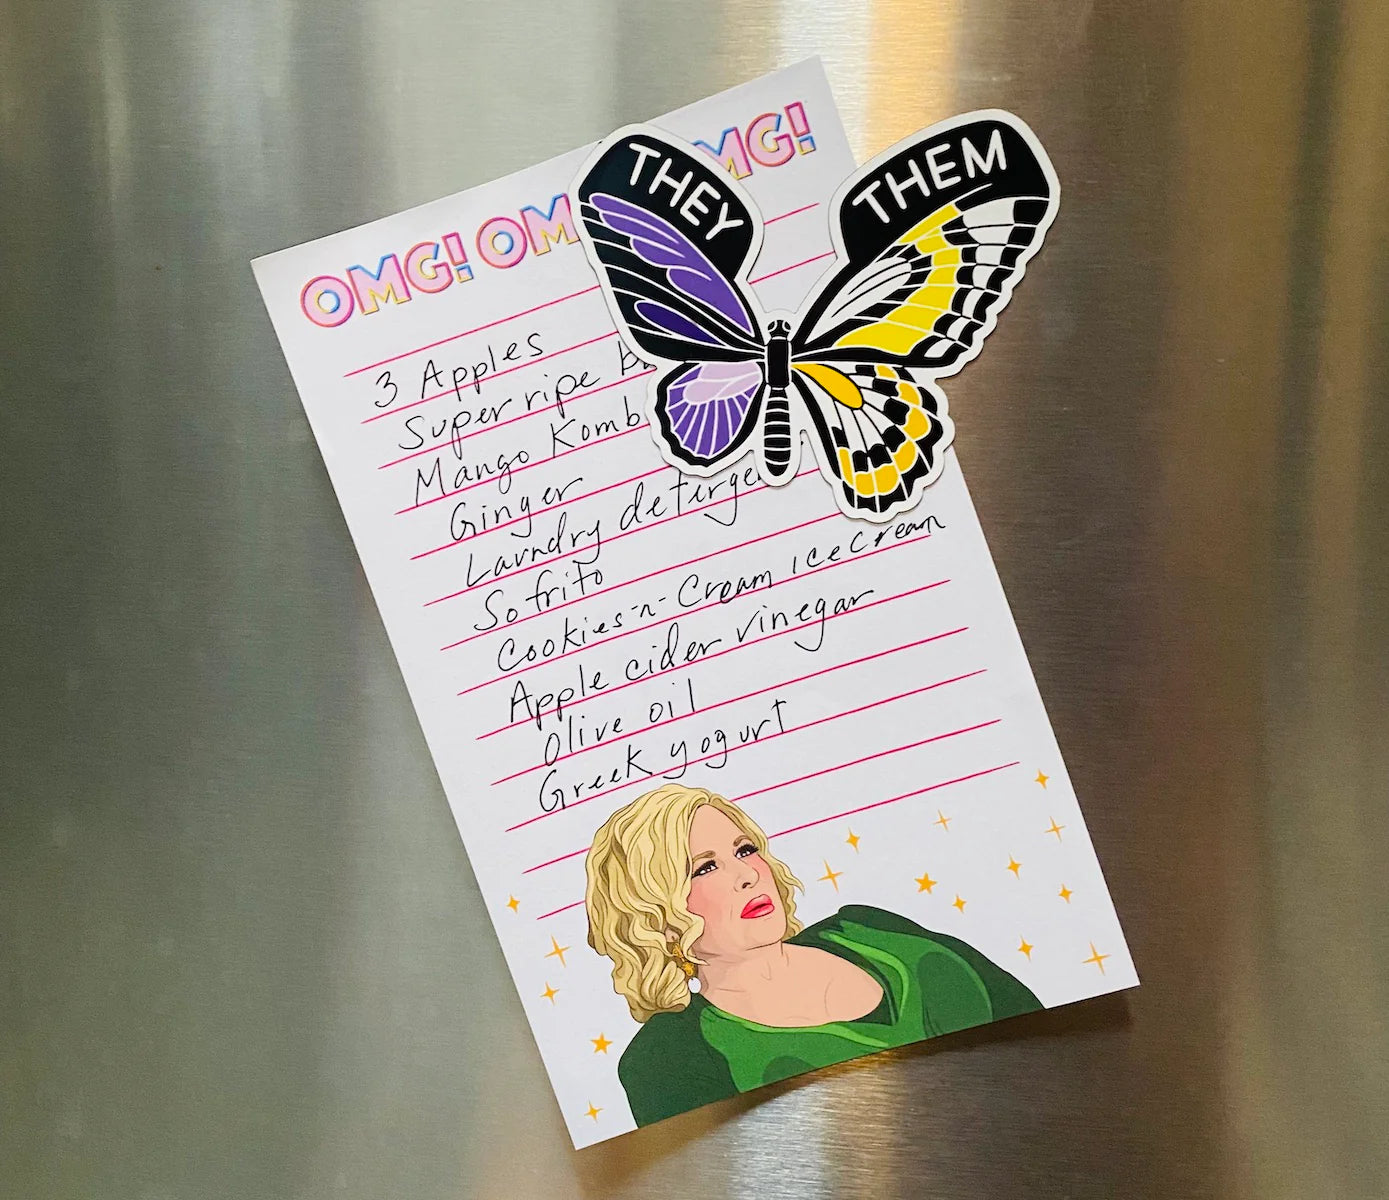 OMG! OM MG!
THEY THEM
3 Apples
Super ripe
Mango Komb
Ginger
Laundry deterge
Sofrito
Cookies-n-Cream ice cream
Apple cider vinegar
Olive oil
Greek yogurt